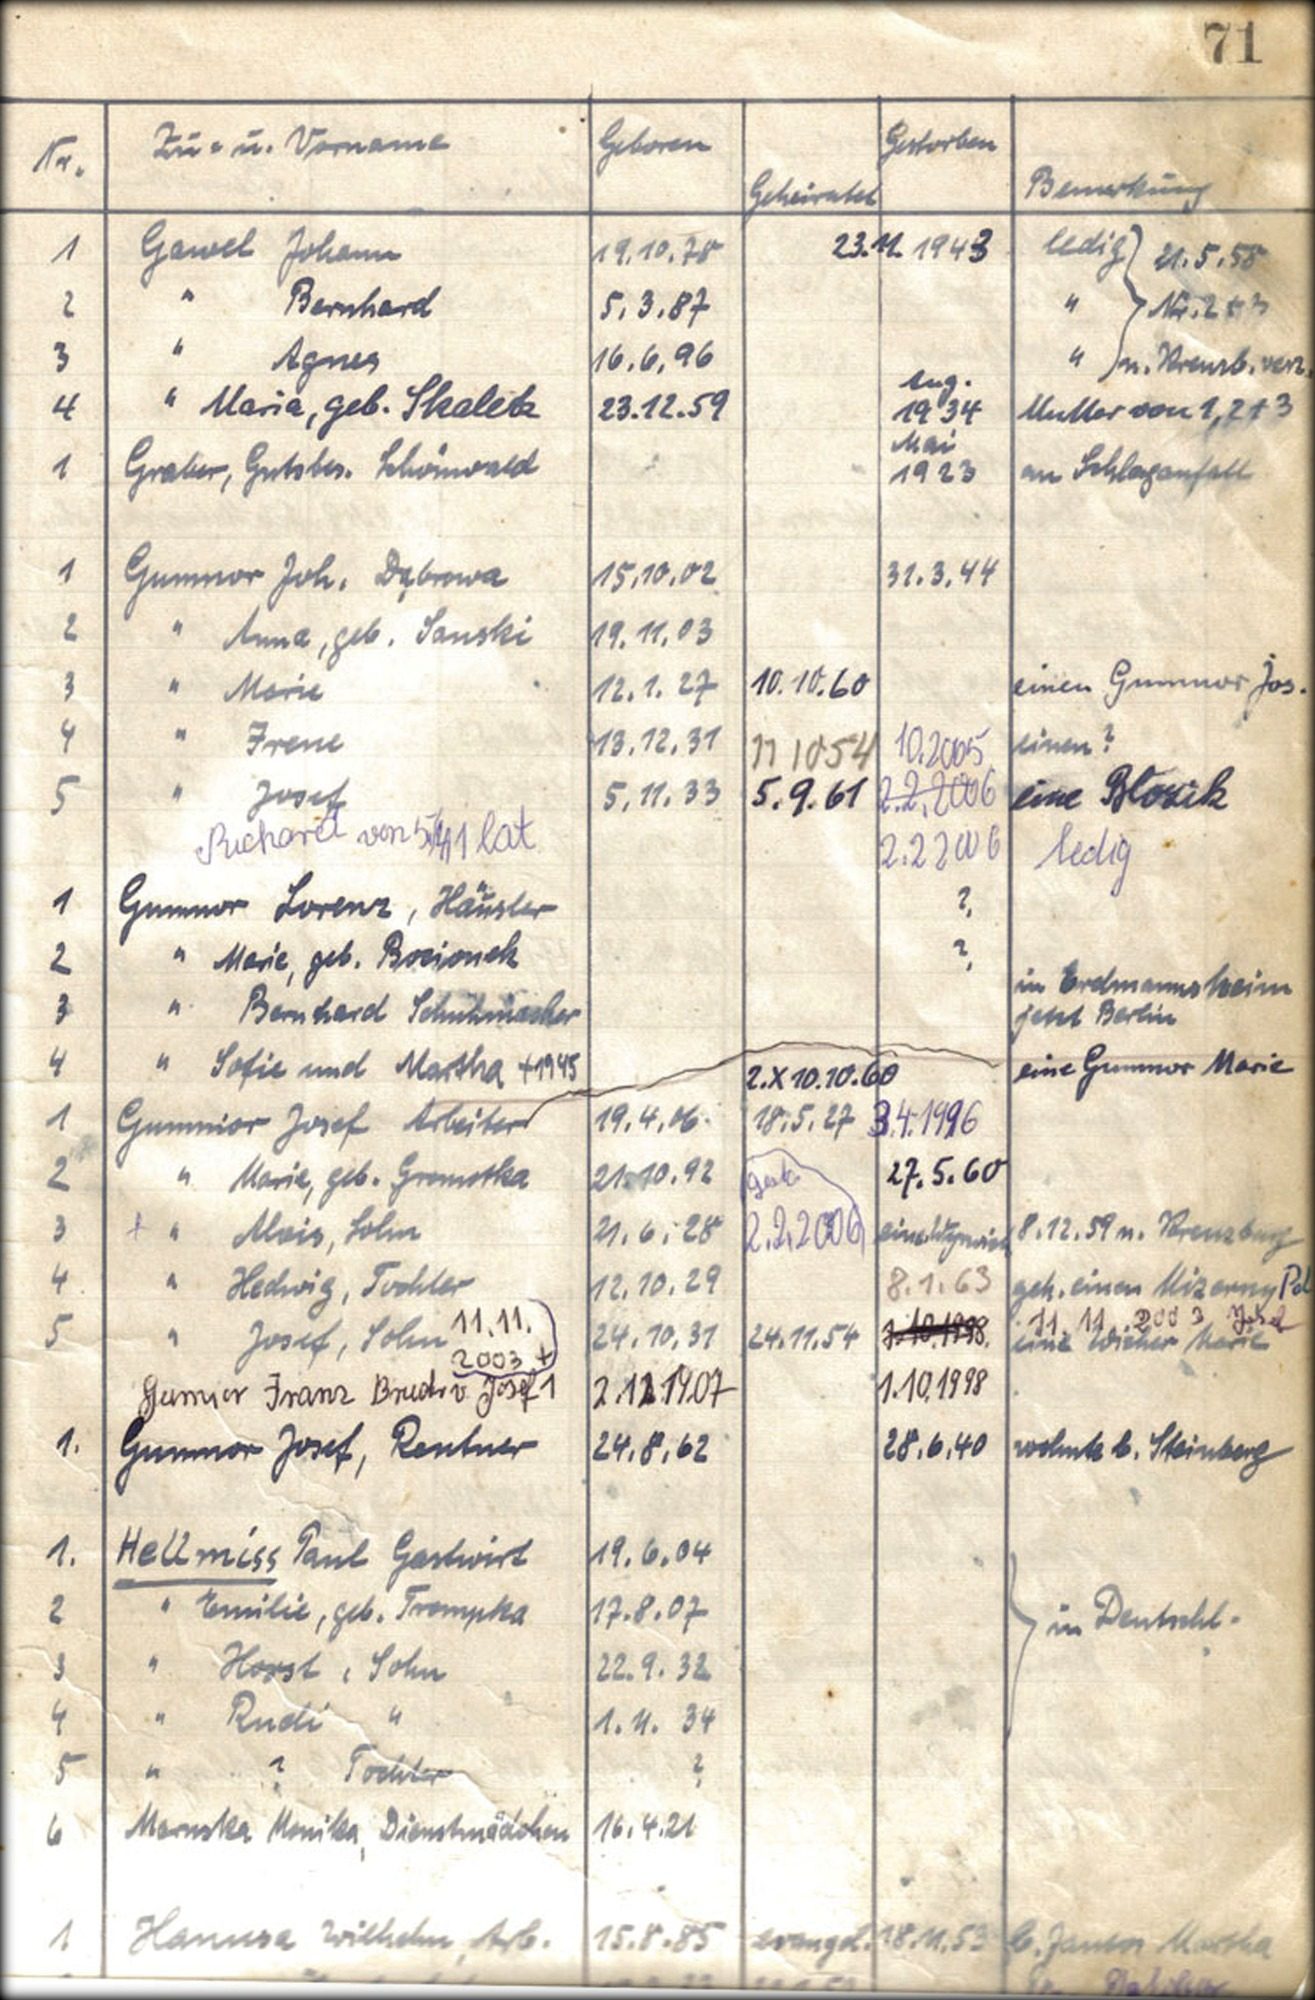 71
Nr. Zu- u. Vorname Geboren Geheiratet Gestorben Bemerkung
1 Gawel Johann 19.10.78 23.11. 1943 ledig } 21.5.58
2 " Bernhard 5.3.87 " Nr. 2 + 3
3 " Agnes 16.6.96 " n. Kreuzb. verz.
4 " Maria, geb. Skaletz 23.12.59 Aug. 1934 Mutter von 1, 2 + 3
1 Graber, Gutsbes. Schönwald Mai 1923 an Schlaganfall
1 Gummor Joh. Dąbrowa 15.10.02 31.3.44
2 " Anna, geb. Sanski 19.11.03
3 " Marie 12.1.27 10.10.60 einen Gummor Jos.
4 " Irene 13.12.31 11 10 54 10.2005 einen ?
5 " Josef 5.11.33 5.9.61 2.2.2006 eine Blozik
Richard von lat 2.2 2006 ledig
1 Gummor Lorenz, Häusler ?
2 " Marie, geb. Bocionek ?
3 " Bernhard Schuhmacher in Erdmannsheim jetzt Berlin
4 " Sofie und Martha +1945 2.X 10.10.60 eine Gummor Marie
1 Gummior Josef Arbeiter 19.4.06. 18.5.27 3.4.1996
2 " Marie, geb. Gromotka 21.10.92 27.5.60
3 + " Alois, Sohn 21.6.28 2.2.2006 eine 8.12.59 n. Kreuzburg
4 " Hedwig, Tochter 12.10.29 8.1.63 geh. einen Mizerny
5 " Josef, Sohn 11.11. 2003 + 24.10.31 24.11.54 1.10.1998. 11. 11. 2003 Josef
eine Wicher Marie
Gumior Franz Bruder v Josef 1 2.12 1907 1.10.1998
1. Gummor Josef, Rentner 24.8.62 28.6.40 wohnte b. Steinberg
1. Hellmiss Paul Gastwirt 19.6.04
2 " Emilie, geb. Trompka 17.8.07 } in Deutschl.
3 " Horst, Sohn 22.9.32
4 " Rudi " 1.11. 34
5 " ? Tochter ?
6 Marnska Monika, Dienstmädchen 16.4.21
1 Hanusa Wilhelm, Arb. 15.8.85 evangel. 18.11.53 b. Martha